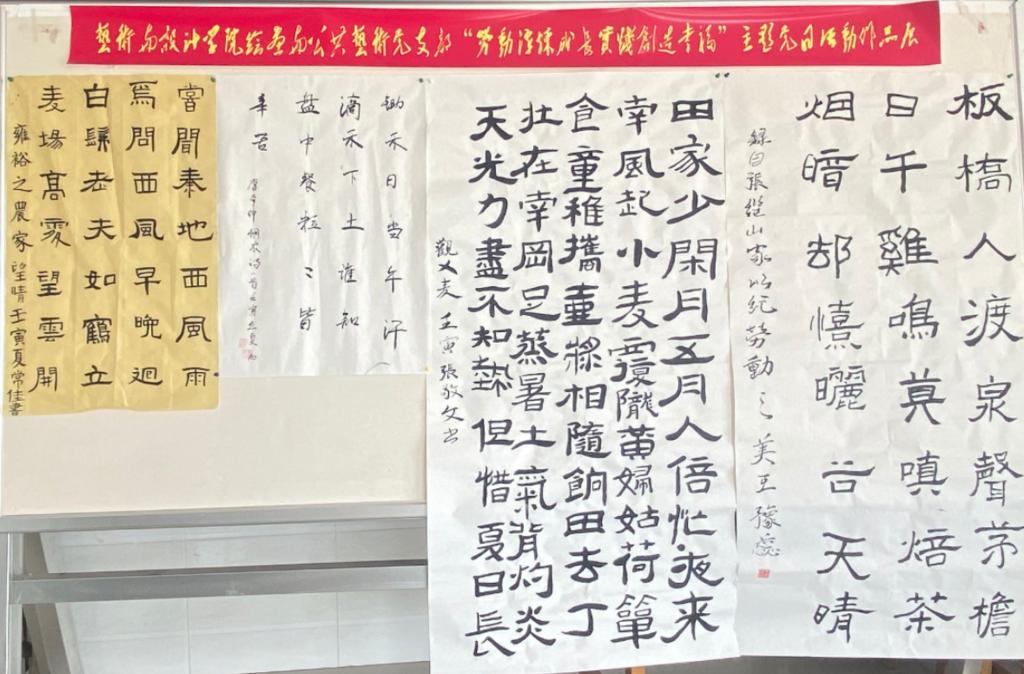 藝術与設计学院绘畫与公共藝術党支部“劳動淬炼成長實踐創造幸福”主题党日活動作品展
板橋人渡泉聲茅檐
日午雞鳴莫嗔焙茶
烟暗却憘曬谷天晴
錄自張继山家以纪劳動之美王豫蕊
田家少閑月五月人倍忙夜来
南風起小麦覆隴黄婦姑荷簞
食童稚攜壺漿相隨餉田去丁
壮在南岡足蒸暑土氣背灼炎
天光力盡不知熱但惜夏日長
觀刈麦 壬寅張敬文书
锄禾日当午汗
滴禾下土谁知
盘中餐粒〻皆
辛苦
唐李绅悯农诗一首壬寅
嘗聞秦地西風雨
爲問西風早晚迴
白髮老夫如鶴立
麦場髙處望雲開
雍裕之農家望晴壬寅夏常佳書